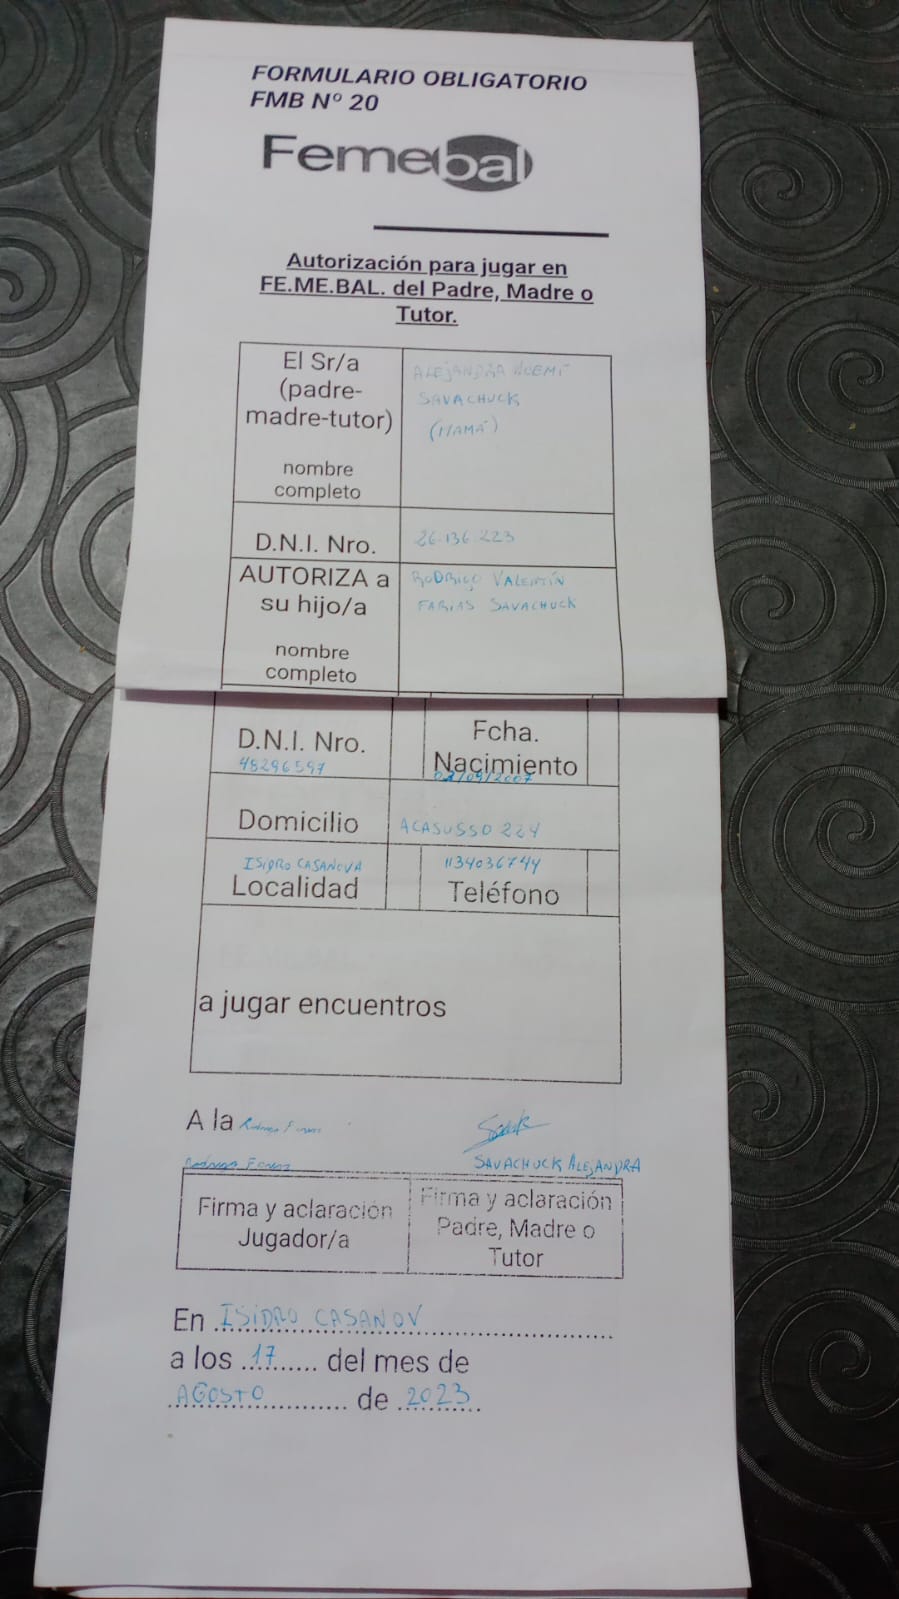 FORMULARIO OBLIGATORIO
FMB Nº 20
Femebal
Autorización para jugar en
FE.ME.BAL. del Padre, Madre o
Tutor.
El Sr/a
(padre-
madre-tutor)
nombre
completo
ALEJANDRA NOEMÍ
SAVACHUCK
(MAMÁ)
D.N.I. Nro.
26.136.223
AUTORIZA a
su hijo/a
nombre
completo
RODRIGO VALENTÍN
FARIAS SAVACHUCK
D.N.I. Nro.
48296597
Fcha.
Nacimiento
/09/2007
Domicilio
ACASUSSO 224
ISIDRO CASANOVA
Localidad
1134036744
Teléfono
a jugar encuentros
A la Rodrigo Farias
Rodrigo Farias
SAVACHUCK ALEJANDRA
Firma y aclaración
Jugador/a
Firma y aclaración
Padre, Madre o
Tutor
En ISIDRO CASANOV
a los 17 del mes de
AGOSTO de 2023